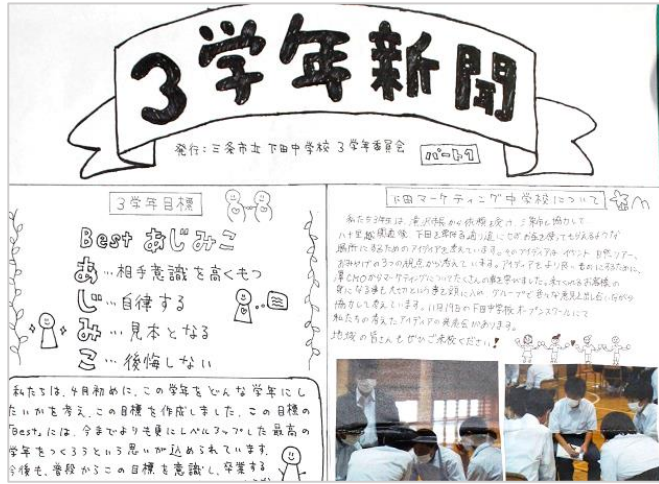 3学年新聞
発行:三条市立 下田中学校 3学年委員会
パート1
3学年目標
Best あじみこ
あ…相手意識を高くもつ
じ…自律する
み…見本となる
こ…後悔しない
私たちは、4月初めに、この学年をどんな学年にし
たいかを考え、この目標を作成しました。この目標の
「Best」には、今までよりも更にレベルアップした最高の
学年をつくろうという思いが込められています。
今後も、普段からこの目標を意識し、卒業する
下田マーケティング中学校について
私たち3年生は、滝沢市長から依頼を受け、三条市と協力して
八十里越開通後、下田を車が通り道に
場所にするためのアイディアを考えています。そのアイディアは イベント、自然、ツアー、
おみやげの3つの視点から考えています。アイディアをより良いものにするために、
澤CMOからマーケティングについてたくさんの事を学びました。来てくれるお客様の
身になる事も大切という事も頭に入れ、グループで色々な意見を出し合いながら
協力して考えています。11月19日の下田中学校オープンスクールにて
私たちの考えたアイディアの発表会があります。
地域の皆さんもぜひご来校ください!